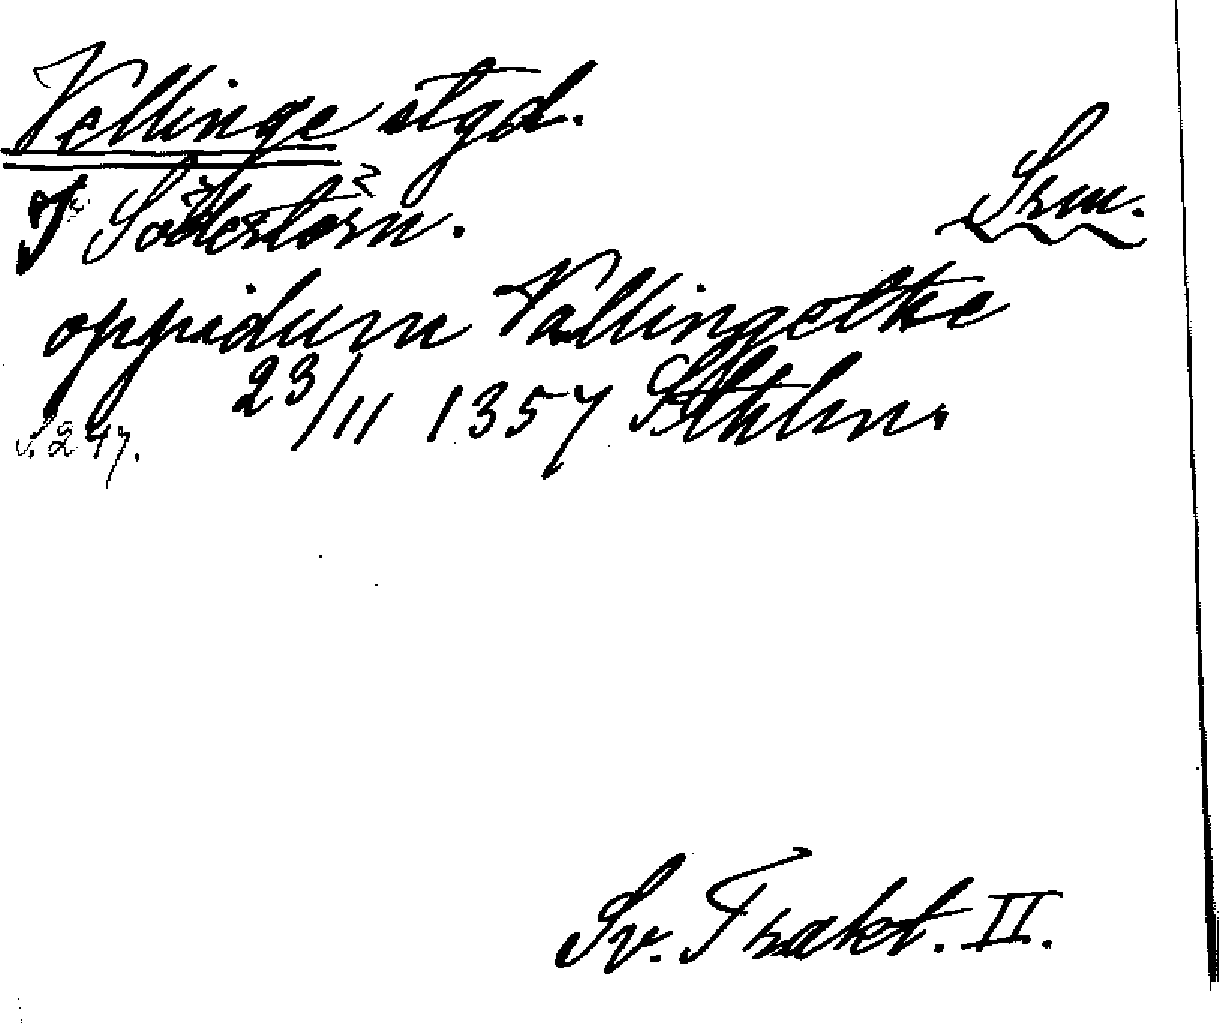 Vällinge stgd.
I Södertörn.
Srm.
oppidum Vallingøthe
23/11 1357 Sthlm.
s. 247.
Sv. Trakt. II.